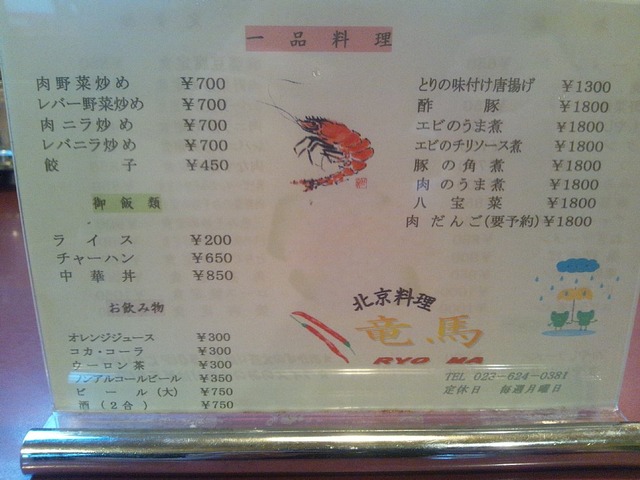 一品料理
肉野菜炒め ¥700
レバー野菜炒め ¥700
肉ニラ炒め ¥700
レバニラ炒め ¥700
餃子 ¥450
御飯類
ライス ¥200
チャーハン ¥650
中華丼 ¥850
お飲み物
オレンジジュース ¥300
コカ・コーラ ¥300
ウーロン茶 ¥300
ノンアルコールビール ¥350
ビール(大) ¥750
酒(2合) ¥750
とりの味付け唐揚げ ¥1300
酢豚 ¥1800
エビのうま煮 ¥1800
エビのチリソース煮 ¥1800
豚の角煮 ¥1800
肉のうま煮 ¥1800
八宝菜 ¥1800
肉だんご(要予約) ¥1800
北京料理
竜馬
RYO MA
TEL 023-624-0381
定休日 毎週月曜日